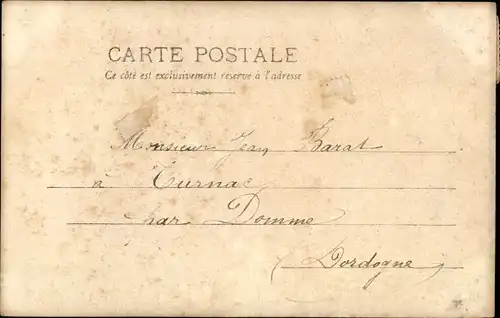 CARTE POSTALE
Ce côté est exclusivement réservé à l'adresse
Monsieur Jean Barat
à Turnac
par Domme
(Dordogne)